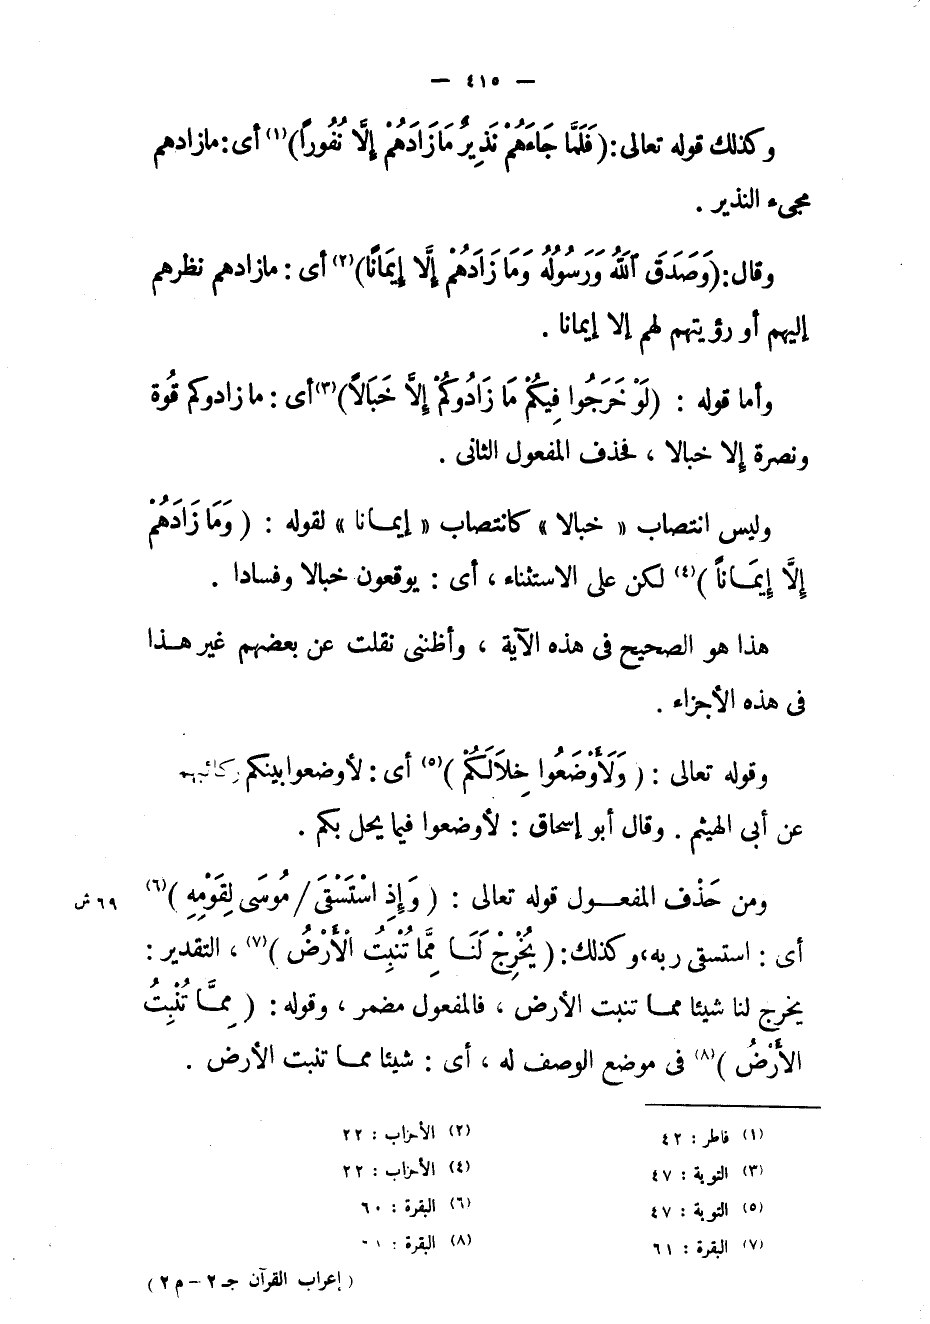 — ٤١٥ —
وكذلك قوله تعالى : ( فَلَمَّا جَاءَهُمْ نَذِيرٌ مَا زَادَهُمْ إِلَّا نُفُوراً )(١) أى : مازادهم
مجىء النذير .
وقال : ( وَصَدَقَ ٱللَّهُ وَرَسُولُهُ وَمَا زَادَهُمْ إِلَّا إِيمَانًا )(٢) أى : مازادهم نظرهم
إليهم أو رؤيتهم لهم إلا إيمانا .
وأما قوله : ( لَوْ خَرَجُوا فِيكُمْ مَا زَادُوكُمْ إِلَّا خَبَالاً )(٣) أى : ما زادوكم قُوة
ونصرة إلا خبالا ، فحذف المفعول الثانى .
وليس انتصاب « خبالا » كانتصاب « إيمـانا » لقوله : ( وَمَا زَادَهُمْ
إِلَّا إِيمَـاناً )(٤) لكن على الاستثناء ، أى : يوقعون خبالا وفسادا .
هذا هو الصحيح فى هذه الآية ، وأظننى نقلت عن بعضهم غير هـذا
فى هذه الأجزاء .
وقوله تعالى : ( وَلَأَوْضَعُوا خِلَالَكُمْ )(٥) أى : لأوضعوا بينكم ركائبهم
عن أبى الهيثم . وقال أبو إسحاق : لأوضعوا فيما يحل بكم .
ومن حَذْف المفعـول قوله تعالى : ( وَإِذِ اسْتَسْقَى / مُوسَى لِقَوْمِهِ )(٦) ٦٩ ش
أى : استسقى ربه، وكذلك : ( يُخْرِجْ لَنَـا مِمَّا تُنْبِتُ الْأَرْضُ )(٧) ، التقدير :
يخرج لنا شيئا ممـا تنبت الأرض ، فالمفعول مضمر ، وقوله : ( مِمَّـا تُنْبِتُ
الأَرْضُ )(٨) فى موضع الوصف له ، أى : شيئا ممـا تنبت الأرض .
(١) فاطر : ٤٢ (٢) الأحزاب : ٢٢
(٣) التوبة : ٤٧ (٤) الأحزاب : ٢٢
(٥) التوبة : ٤٧ (٦) البقرة : ٦٠
(٧) البقرة : ٦١ (٨) البقرة : ٦١
( إعراب القرآن جـ ٢ – م ٢ )